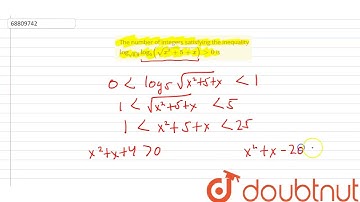 68809742
The number of integers satisfying the inequality
log₅(√x²+5+x) > 0 is
0 < log₅ √x²+5+x < 1
1 < √x²+5+x < 5
1 < x²+5+x < 25
x²+x+4 > 0 x²+x-20
doubtnut